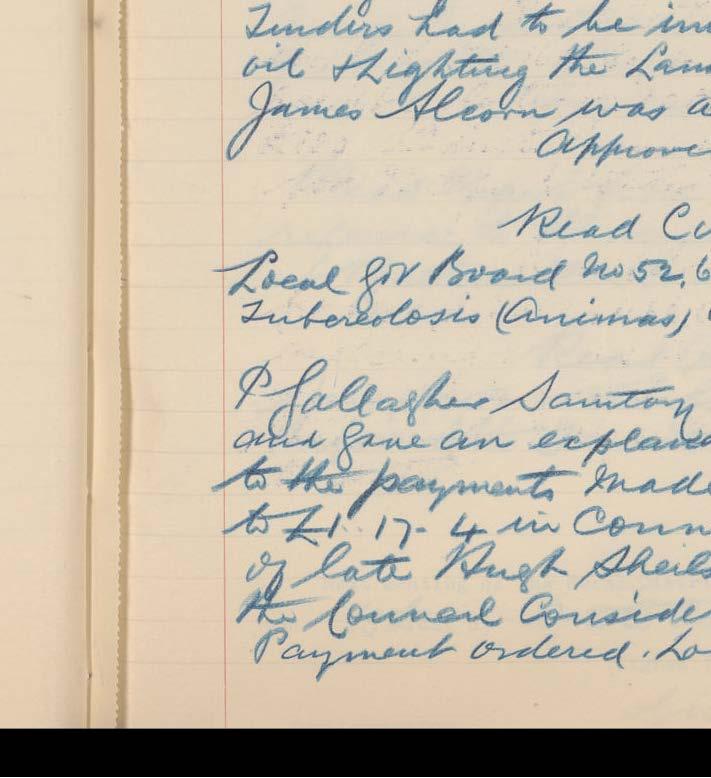 Tenders had to be in
oil & Lighting the Lam
James Alcorn was a
Approve
Read Ci
Local Gov Board No 52,6
Tuberculosis (Animas)
P Gallagher Sanitary
and gave an explana
to the payments made
to £1. 17- 4 in Conn
of late Hugh Sheils
the Council Conside
Payment ordered. Lo